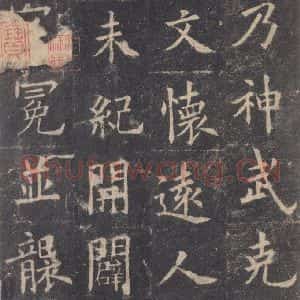 乃神武克
文懷遠人
未紀開闢
冕並襲